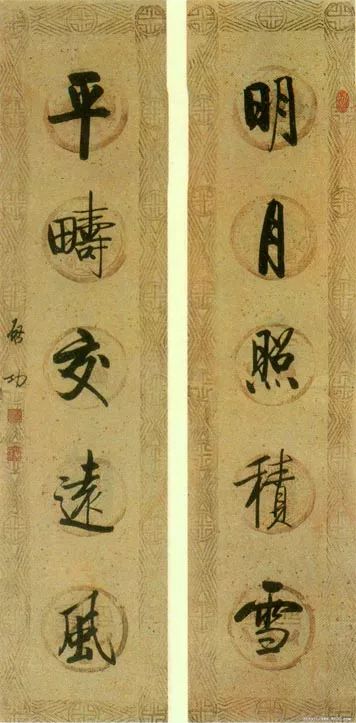 明月照積雪
平疇交遠風
啓功